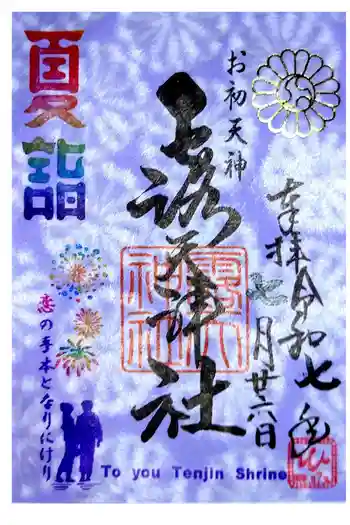 奉拝令和七年
七月廿六日
お初天神
露天神社
露天神社
夏詣
恋の手本となりにけり
To you Tenjin Shrine